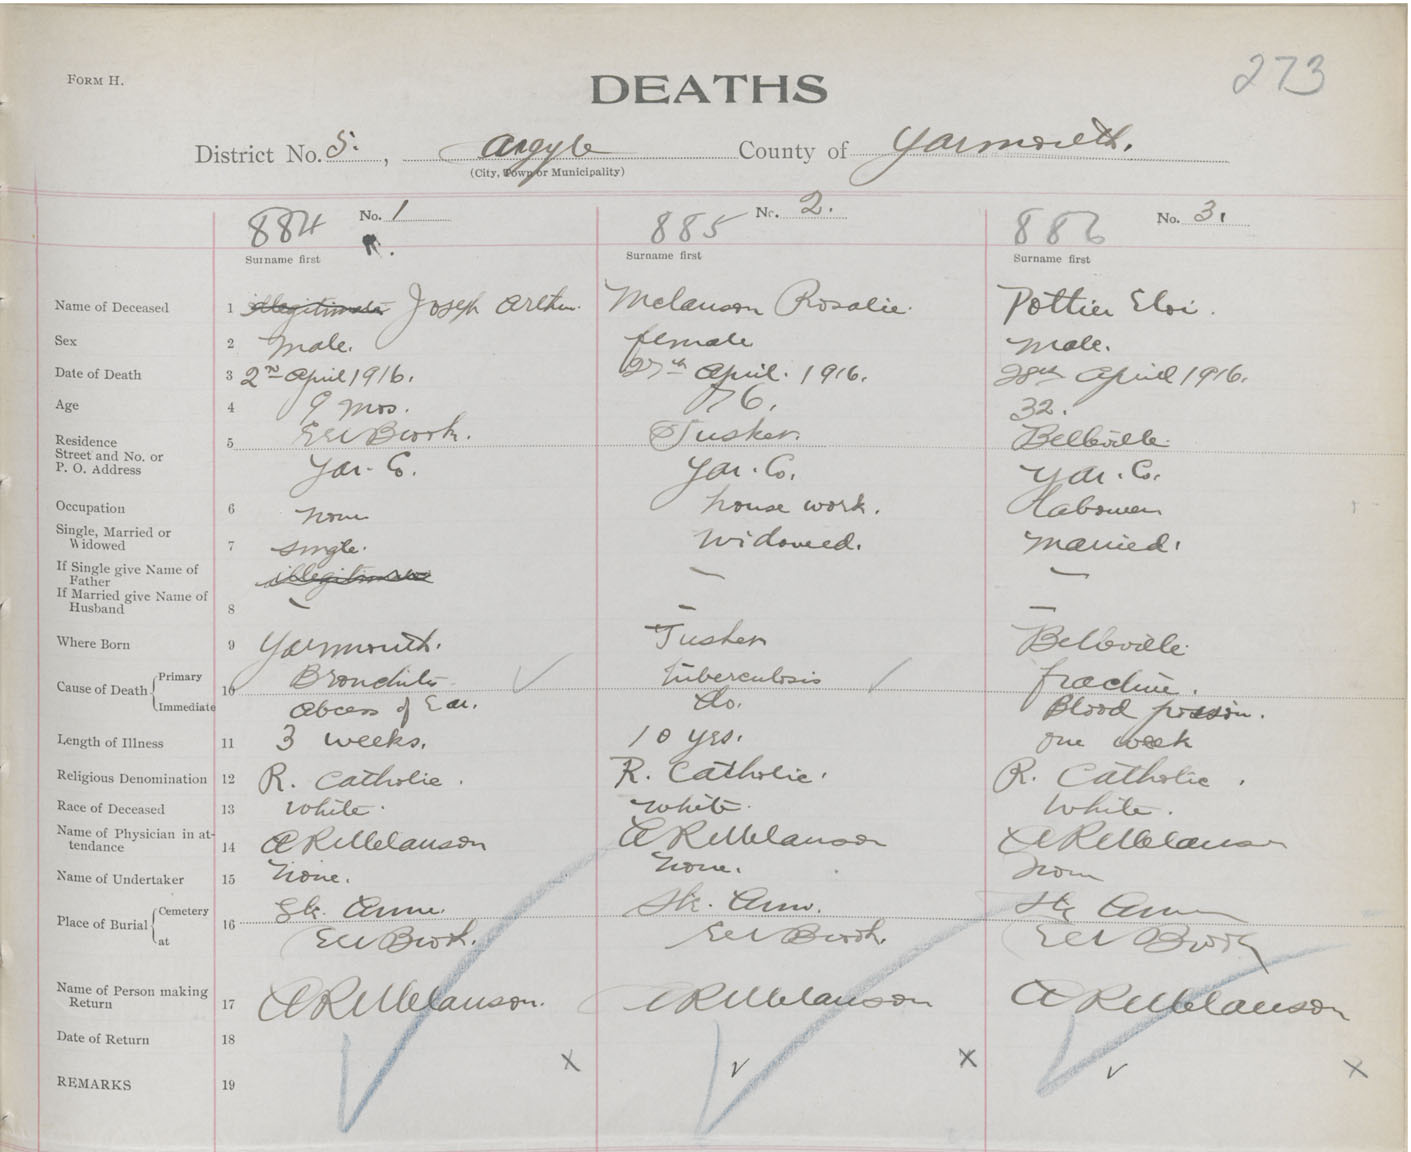 FORM H.
273
DEATHS
District No. 5. , Argyle County of Yarmouth.
(City, Town or Municipality)
884 No. 1 885 No. 2. 886 No. 3.
Surname first Surname first Surname first
Name of Deceased 1 illegitimate Joseph Arthur. Melanson Rosalie. Pottier Eloi.
Sex 2 male. female male.
Date of Death 3 2nd April 1916. 27th April. 1916. 28th April 1916.
Age 4 9 mos. 76. 32.
Residence 5 Eel Brook. Tusket Belleville.
Street and No. or
P. O. Address Yar. Co. Yar. Co. Yar. Co.
Occupation 6 none house work. Labourer
Single, Married or
Widowed 7 single. Widowed. Married.
If Single give Name of
Father illegitimate — —
If Married give Name of
Husband 8 — — —
Where Born 9 Yarmouth. Tusket Belleville.
Cause of Death Primary 10 Bronchitis Tuberculosis fracture.
Immediate Abcess of Ear. do. Blood poison.
Length of Illness 11 3 weeks. 10 yrs. one week
Religious Denomination 12 R. Catholic. R. Catholic. R. Catholic.
Race of Deceased 13 White. White. White.
Name of Physician in at-
tendance 14 A R Melanson A R Melanson A R Melanson
Name of Undertaker 15 None. None. None
Place of Burial Cemetery 16 Ste. Anne. Ste. Ann. Ste Anne
at Eel Brook. Eel Brook. Eel Brook
Name of Person making
Return 17 A R Melanson. A R Melanson A R Melanson
Date of Return 18
REMARKS 19